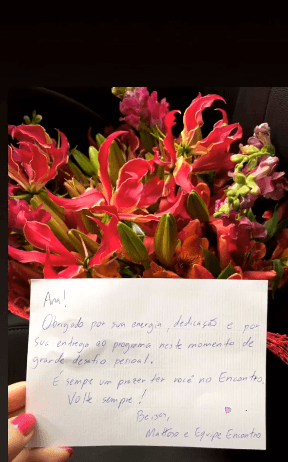 Ana!
Obrigado por sua energia, dedicação e por
sua entrega ao programa neste momento de
grande desafio pessoal.
É sempre um prazer ter você no Encontro.
Volte sempre!
Beijos,
e Equipe Encontro